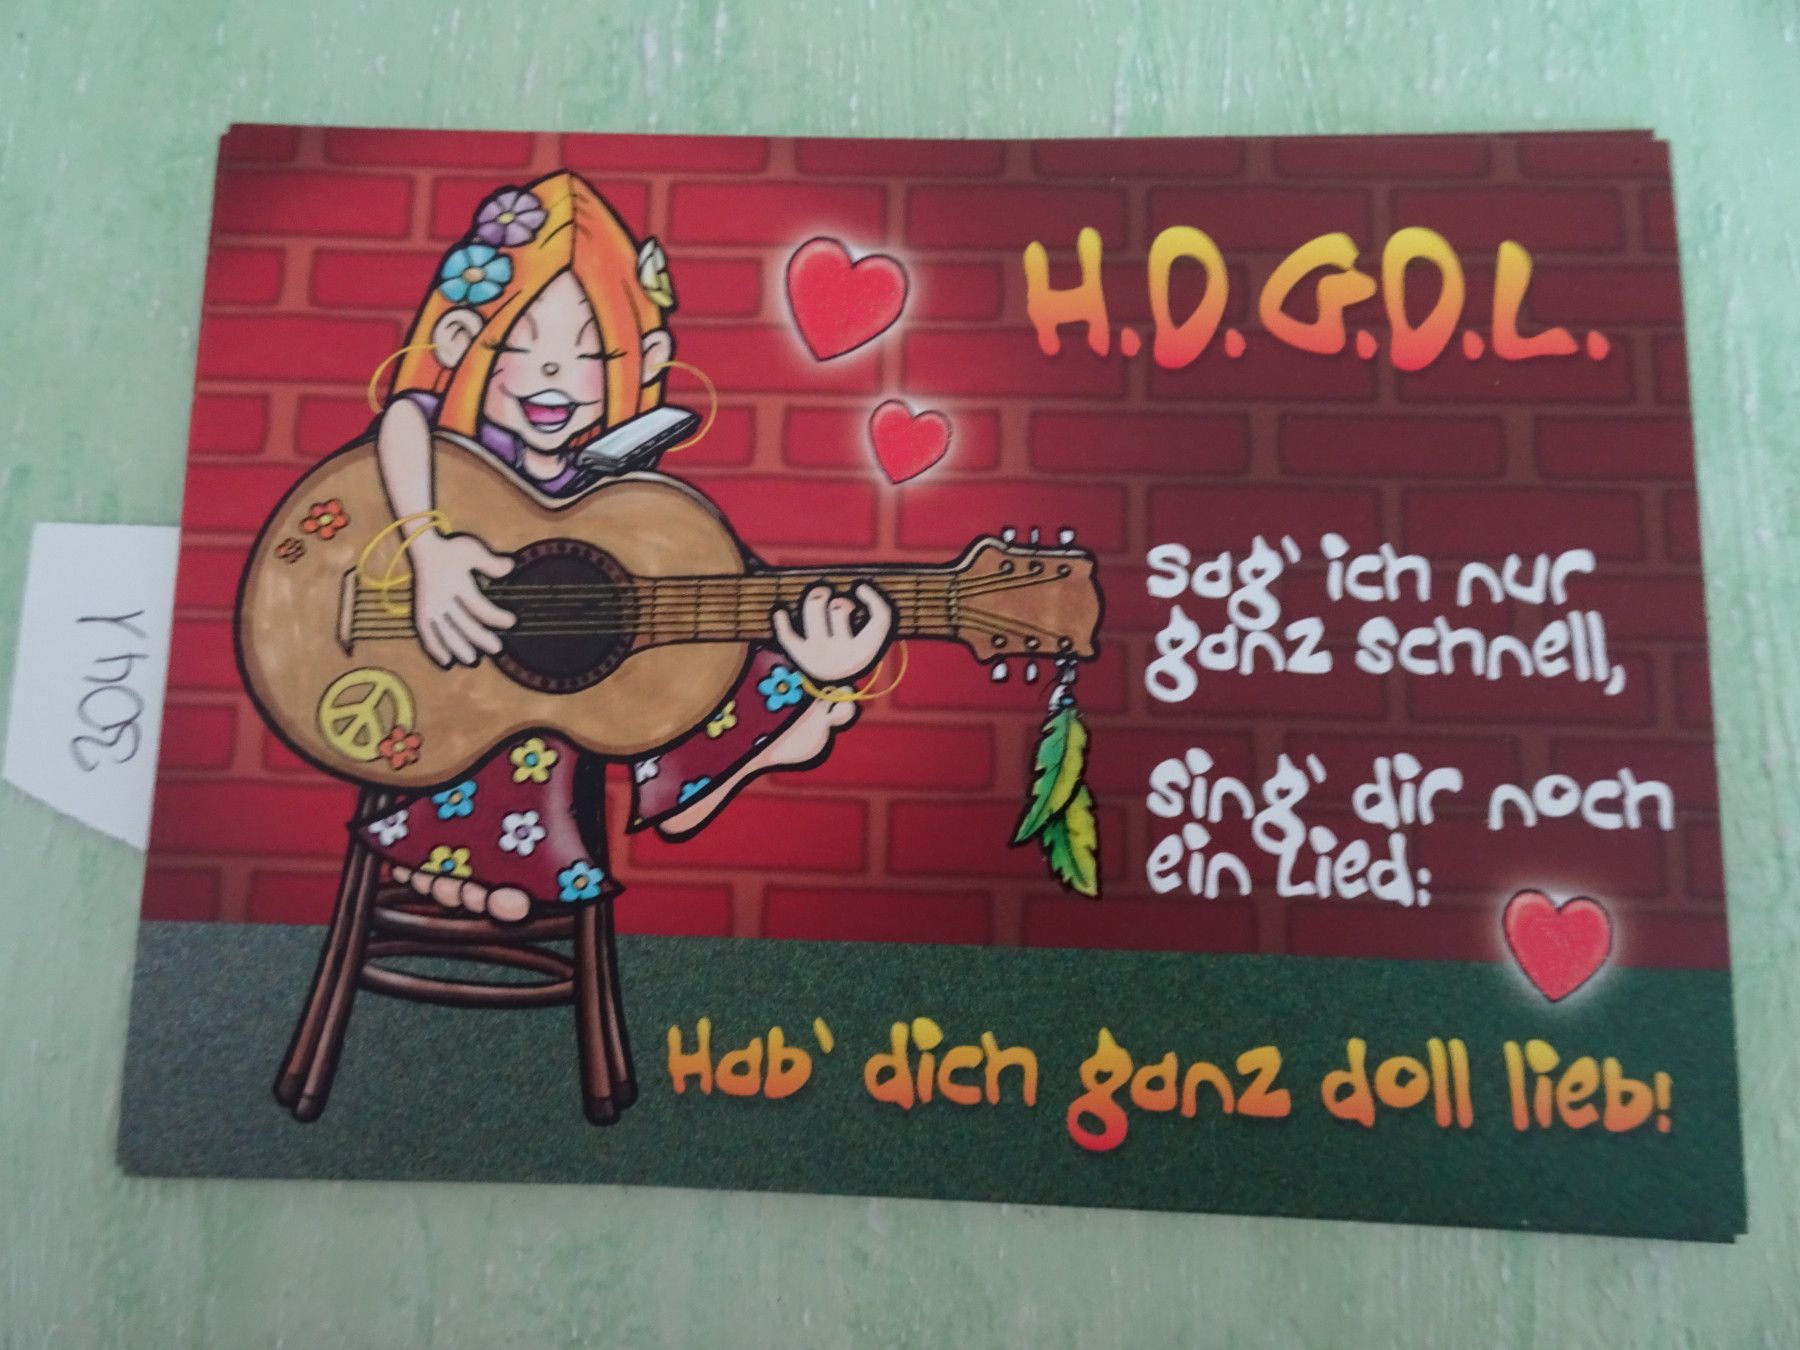 H.D.G.D.L.
sag' ich nur
ganz schnell,
sing' dir noch
ein Lied:
Hab' dich ganz doll lieb!